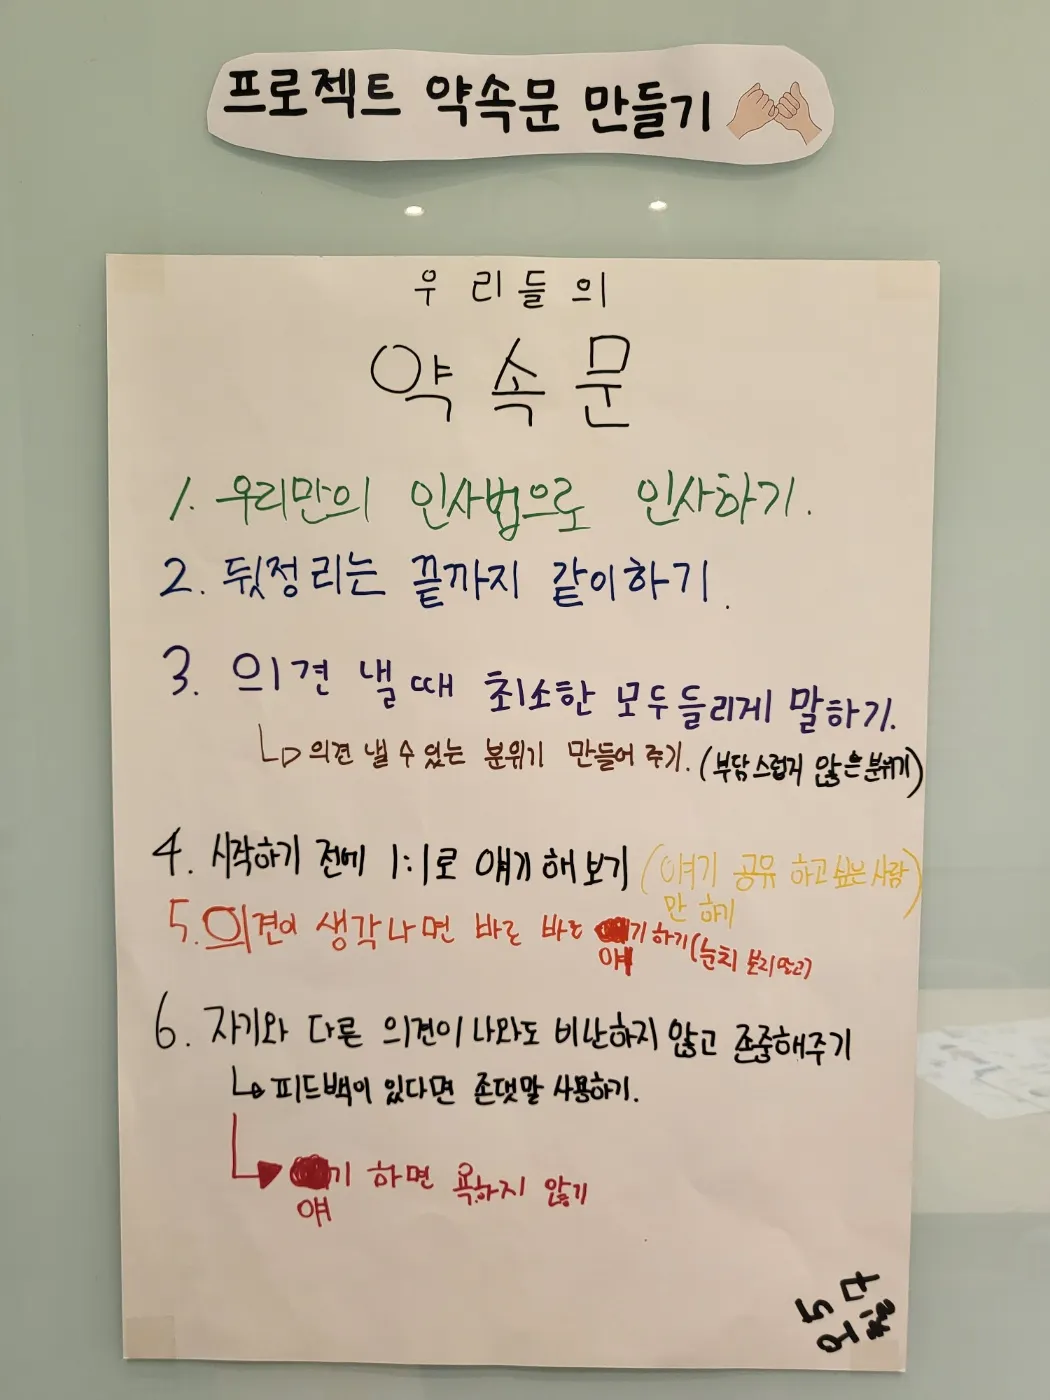 프로젝트 약속문 만들기
우리들의
약속문
1. 우리만의 인사법으로 인사하기.
2. 뒷정리는 끝까지 같이하기.
3. 의견 낼 때 최소한 모두들리게 말하기.
의견 낼 수 있는 분위기 만들어 주기. (부담스럽지 않은 분위기)
4. 시작하기 전에 1:1로 얘기 해 보기 (얘기 공유 하고 싶은 사람
만 하기)
5. 의견이 생각나면 바로 바로 얘기하기 (눈치 보지 말고)
6. 자기와 다른 의견이 나와도 비난하지 않고 존중해주기
피드백이 있다면 존댓말 사용하기.
얘기 하면 욕하지 않기